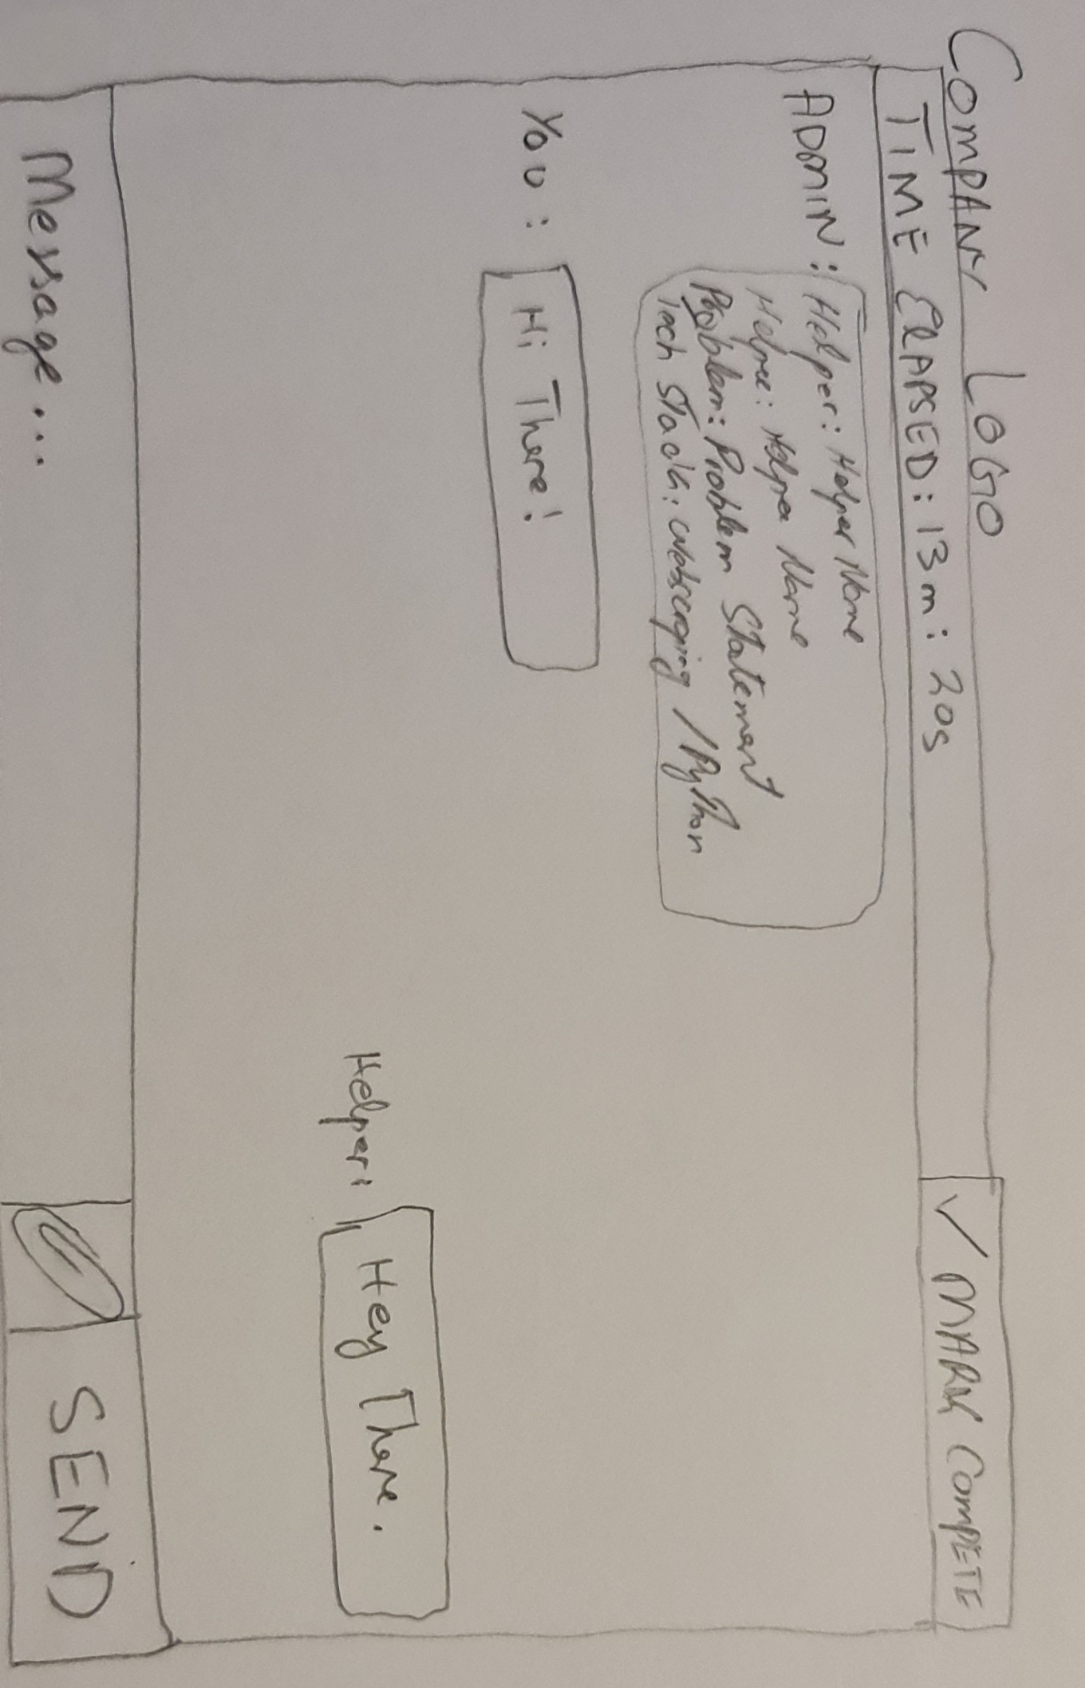 COMPANY LOGO
TIME ELAPSED: 13m: 20s
✓ MARK COMPETE
ADMIN: Helper: Helper Name
Helpee: Helpee Name
Problem: Problem Statement
Tech Stack: Webscraping / Python
You: Hi There!
Helper: Hey There.
Message...
SEND